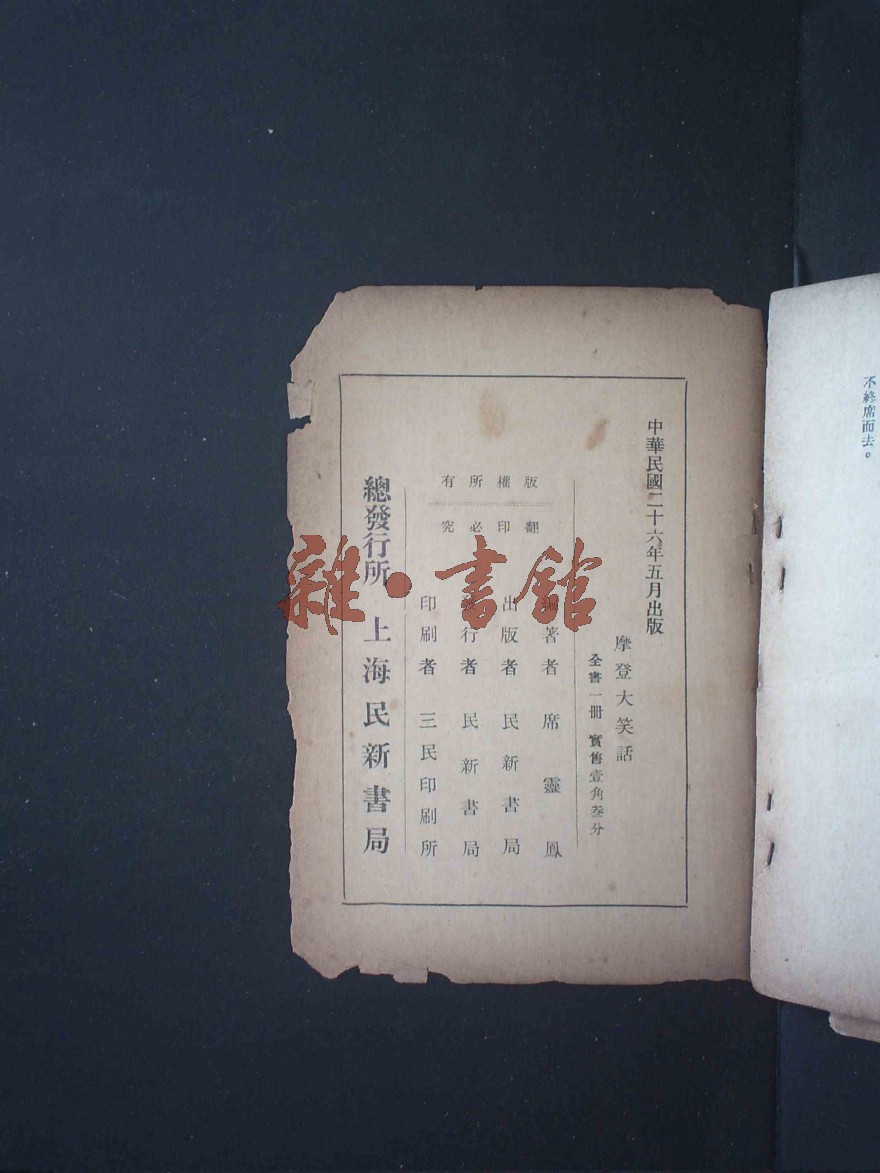 不終席而去。
中華民國二十六年五月出版
摩登大笑話
全書一冊 實售壹角叁分
版權所有
翻印必究
編著者 席靈鳳
出版者 民新書局
發行者 民新書局
印刷者 三民印刷所
總發行所 上海民新書局
雜·書館